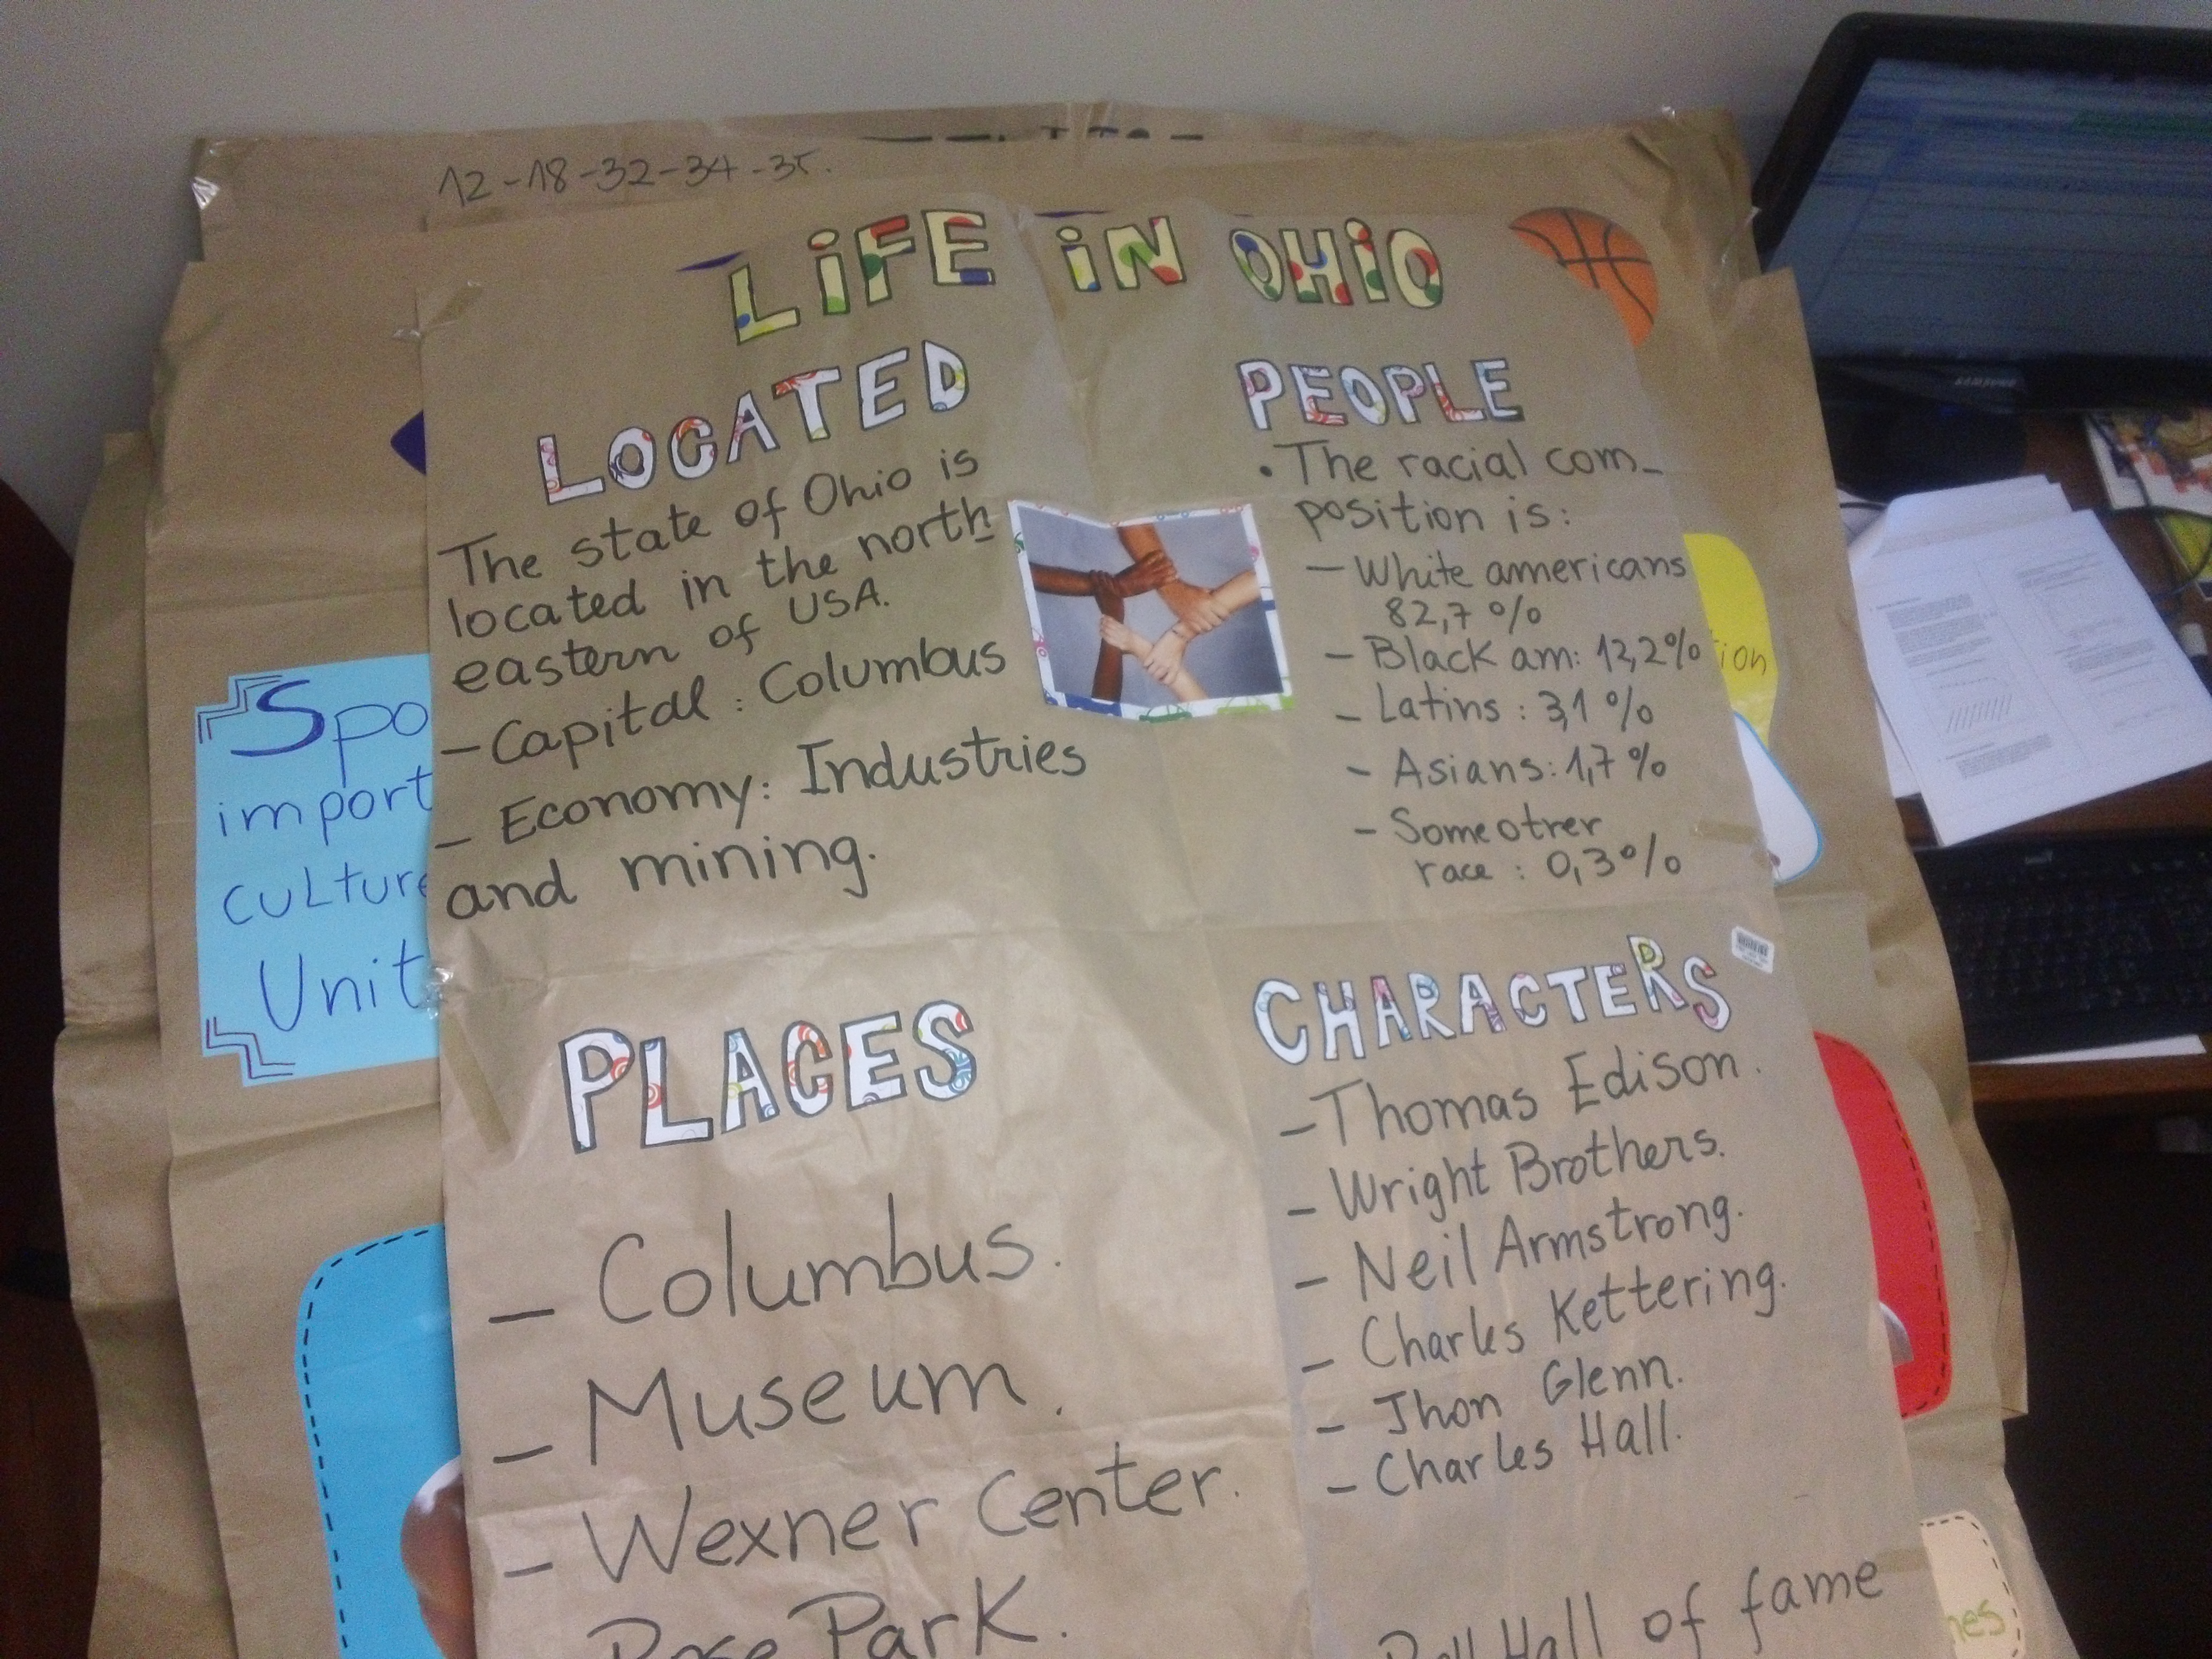 12-18-32-34-35.
LiFE iN OHiO
LOCATED
The state of Ohio is
located in the north
eastern of USA.
- Capital: Columbus
- Economy: Industries
and mining.
PEOPLE
• The racial com-
position is:
- White americans
82,7%
- Black am: 12,2%
- Latins: 3,1%
- Asians: 1,7%
- Some otrer
race: 0,3%
PLACES
- Columbus.
- Museum.
- Wexner Center.
Park.
CHARACTERS
- Thomas Edison.
- Wright Brothers.
- Neil Armstrong.
- Charles Kettering.
- Jhon Glenn.
- Charles Hall.
Hall of fame
Spo
import
culture
Unit
tion
nes
SAMSUNG